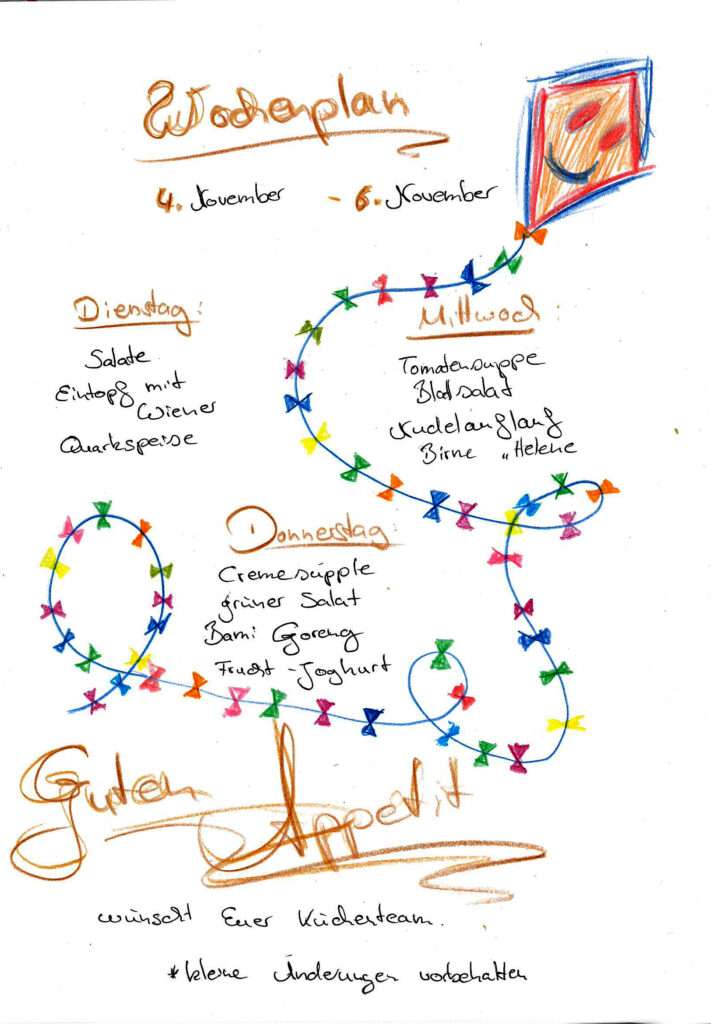 Wochenplan
4. November - 6. November
Dienstag:
Salate
Eintopf mit
Wiener
Quarkspeise
Mittwoch:
Tomatensuppe
Blattsalat
Nudelauflauf
Birne „Helene
Donnerstag:
Cremesüpple
grüner Salat
Bami Goreng
Frucht-Joghurt
Guten Appetit
wünscht Euer Küchenteam.
*kleine Änderungen vorbehalten